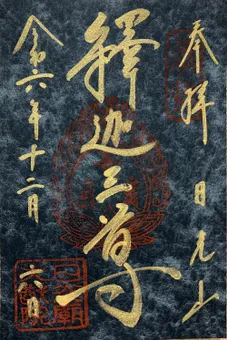 奉拝 日光山
釋迦三尊
令和六年十二月
六日